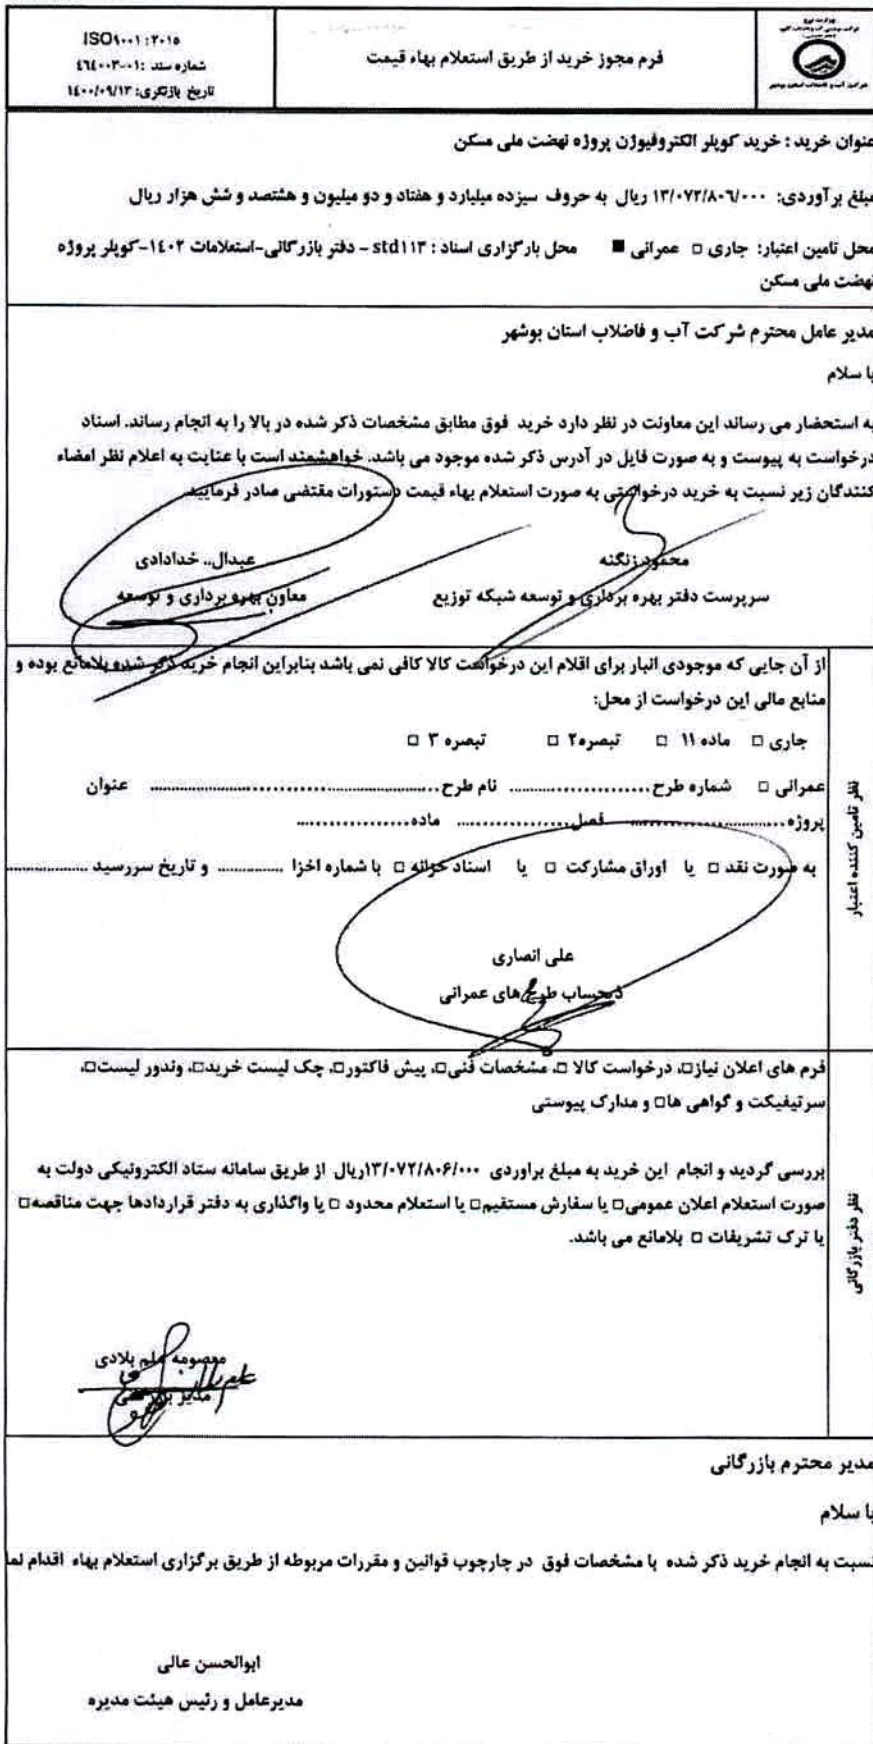 ISO۹۰۰۱ :۲۰۱۵
شماره سند :۰۱-۴۶۴۰۰۳
تاریخ بازنگری: ۱۴۰۰/۰۹/۱۳
فرم مجوز خرید از طریق استعلام بهاء قیمت
وزارت نیرو
عنوان خرید : خرید کوپلر الکتروفیوژن پروژه نهضت ملی مسکن
مبلغ برآوردی: ۱۳/۰۷۲/۸۰۶/۰۰۰ ریال به حروف سیزده میلیارد و هفتاد و دو میلیون و هشتصد و شش هزار ریال
محل تامین اعتبار: جاری □ عمرانی ■ محل بارگزاری اسناد : std۱۱۳ - دفتر بازرگانی-استعلامات ۱۴۰۲-کوپلر پروژه
نهضت ملی مسکن
مدیر عامل محترم شرکت آب و فاضلاب استان بوشهر
با سلام
به استحضار می رساند این معاونت در نظر دارد خرید فوق مطابق مشخصات ذکر شده در بالا را به انجام رساند. اسناد
درخواست به پیوست و به صورت فایل در آدرس ذکر شده موجود می باشد. خواهشمند است با عنایت به اعلام نظر امضاء
کنندگان زیر نسبت به خرید درخواستی به صورت استعلام بهاء قیمت دستورات مقتضی صادر فرمایید.
محمود زنگنه
عبدال.. خدادادی
سرپرست دفتر بهره برداری و توسعه شبکه توزیع
معاون بهره برداری و توسعه
نظر تامین کننده اعتبار
از آن جایی که موجودی انبار برای اقلام این درخواست کالا کافی نمی باشد بنابراین انجام خرید ذکر شده بلامانع بوده و
منابع مالی این درخواست از محل:
جاری □ ماده ۱۱ □ تبصره۲ □ تبصره ۳ □
عمرانی □ شماره طرح........................ نام طرح................................................ عنوان
پروژه......................... فصل.................. ماده..................
به صورت نقد □ یا اوراق مشارکت □ یا اسناد خزانه □ با شماره اخزا ............. و تاریخ سررسید ................
علی انصاری
ذیحساب طرح های عمرانی
نظر دفتر بازرگانی
فرم های اعلان نیاز□، درخواست کالا □، مشخصات فنی□، پیش فاکتور□، چک لیست خرید□، وندور لیست□،
سرتیفیکت و گواهی ها□ و مدارک پیوستی
بررسی گردید و انجام این خرید به مبلغ براوردی ۱۳/۰۷۲/۸۰۶/۰۰۰ریال از طریق سامانه ستاد الکترونیکی دولت به
صورت استعلام اعلان عمومی□ یا سفارش مستقیم□ یا استعلام محدود □ یا واگذاری به دفتر قراردادها جهت مناقصه□
یا ترک تشریفات □ بلامانع می باشد.
معصومه علم بلادی
مدیر بازرگانی
مدیر محترم بازرگانی
با سلام
نسبت به انجام خرید ذکر شده با مشخصات فوق در چارچوب قوانین و مقررات مربوطه از طریق برگزاری استعلام بهاء اقدام نما
ابوالحسن عالی
مدیرعامل و رئیس هیئت مدیره